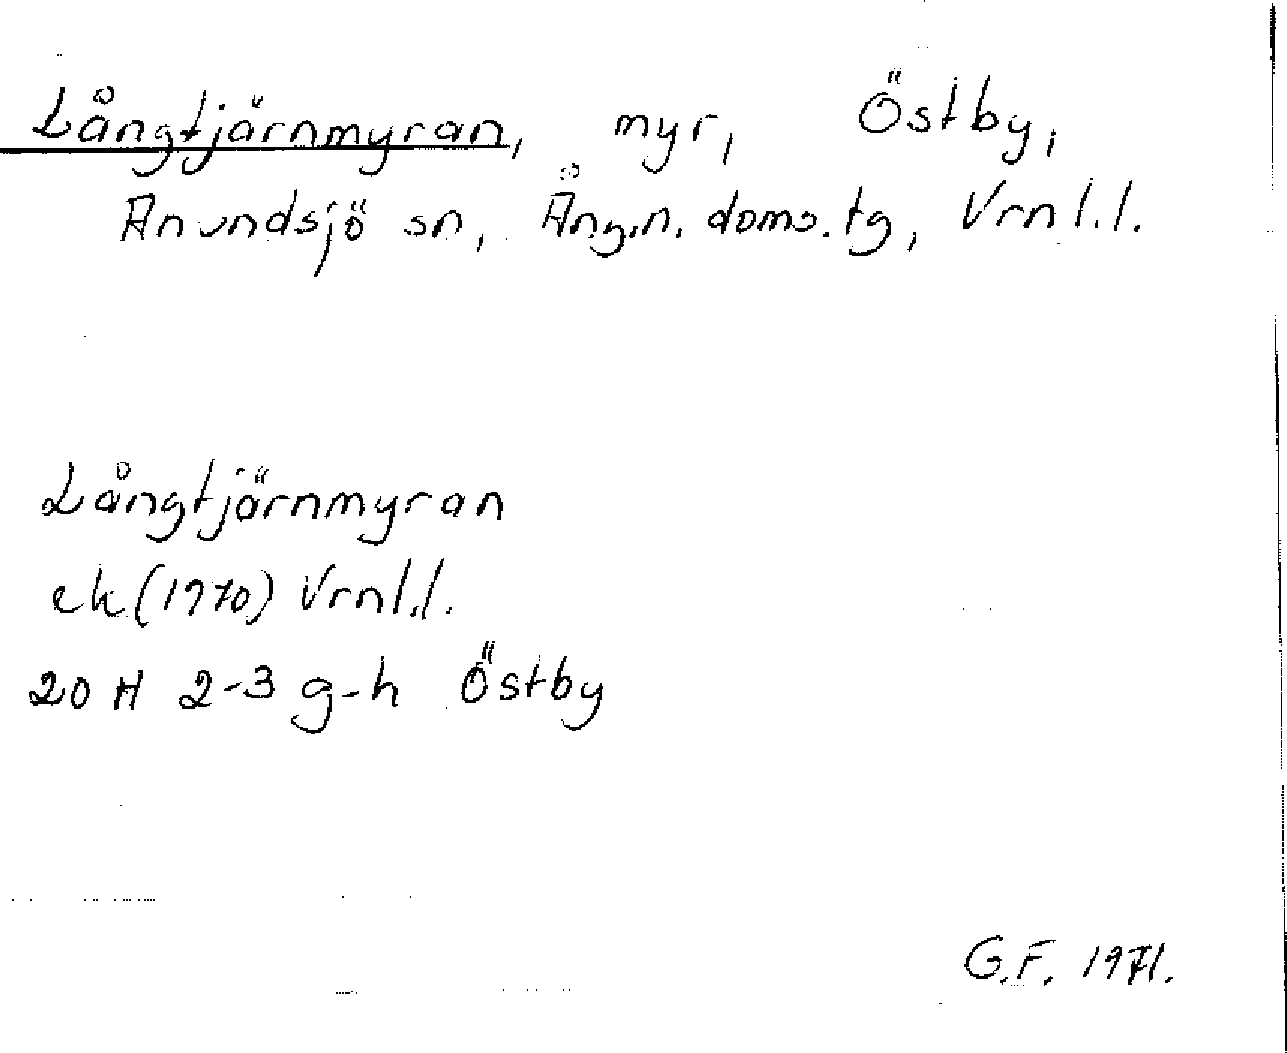 Långtjärnmyran, myr, Östby,
Anundsjö sn, Ång.n. doms.tg, Vrnl.l.
Långtjärnmyran
ek (1970) Vrnl.l.
20 H 2-3 g-h Östby
G.F. 1971.